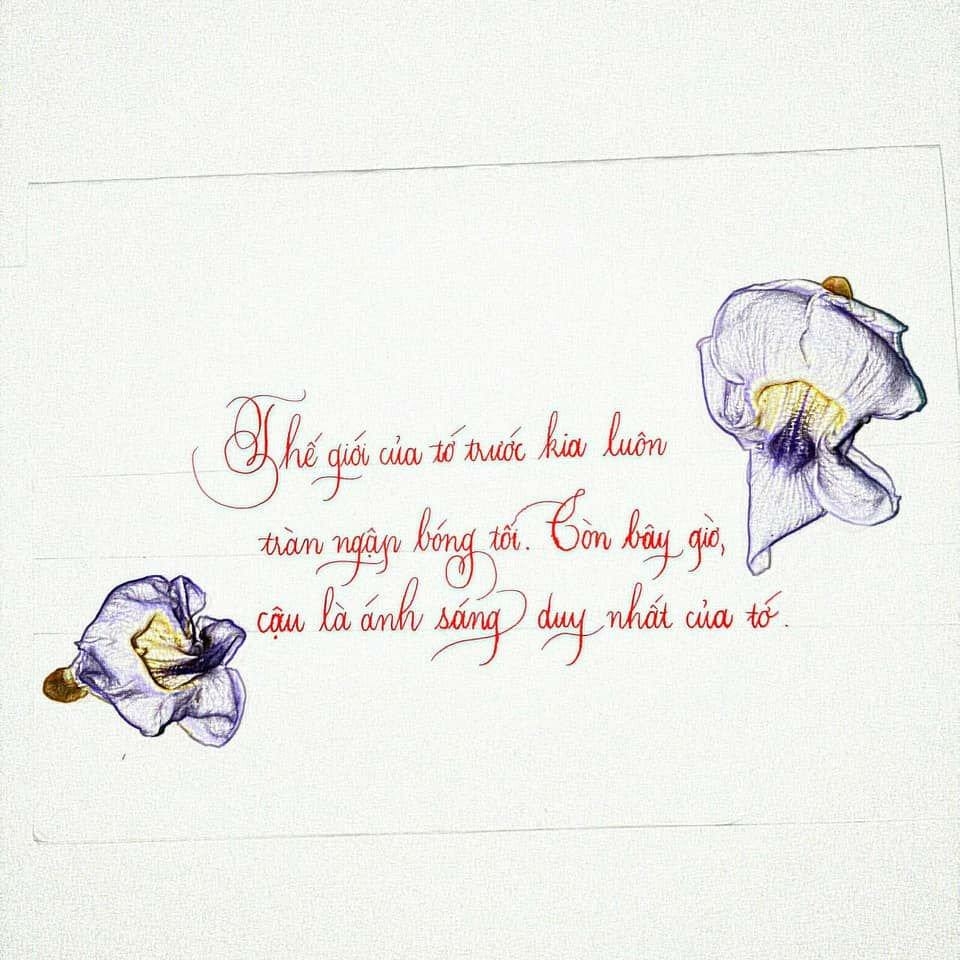 Thế giới của tớ trước kia luôn
tràn ngập bóng tối. Còn bây giờ,
cậu là ánh sáng duy nhất của tớ.